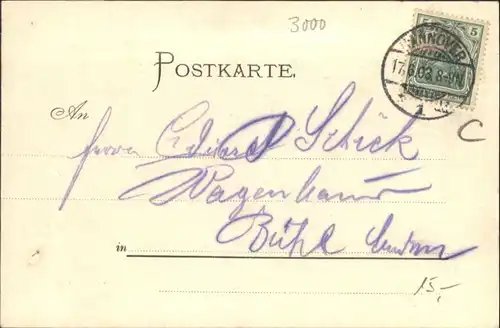 3000
5 5
HANNOVER
17.6.03. 8-9N.
1
POSTKARTE.
C
An
Herrn Eduard Schick
Wagenbauer
in Bühl Baden
15,-